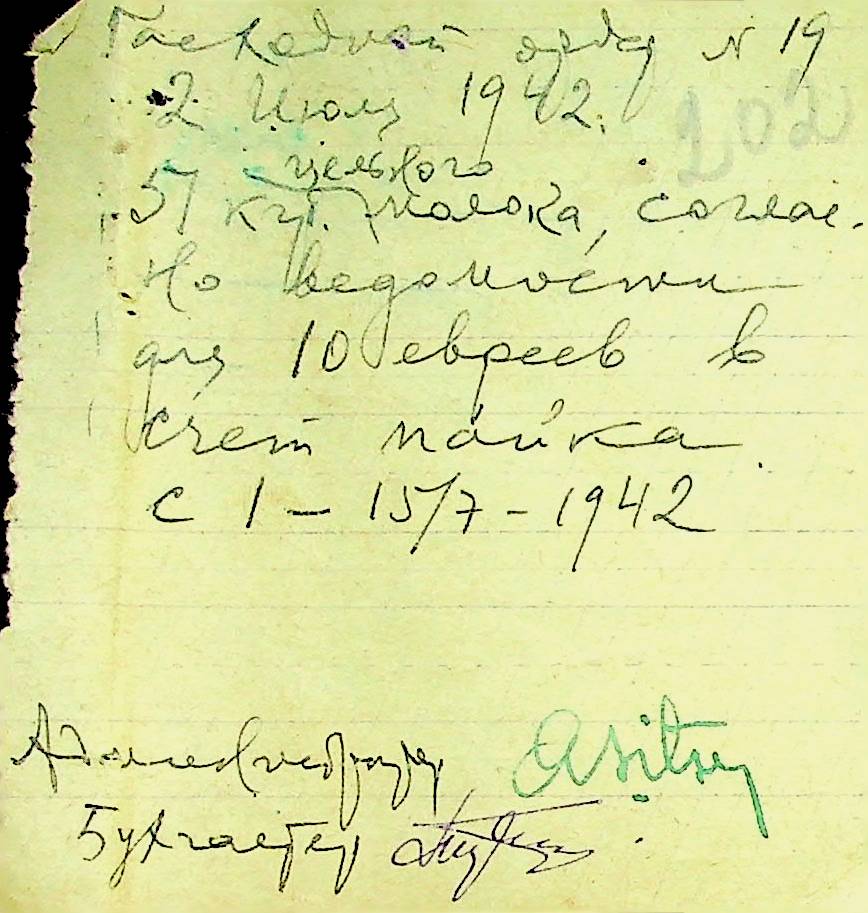 Расходный ордер N 19
2 Июля 1942.
202
цельного
51 кгр. молока, соглас-
но ведомости
для 10 евреев в
счет пайка
с 1 – 15/7 – 1942
Администратор
Бухгалтер